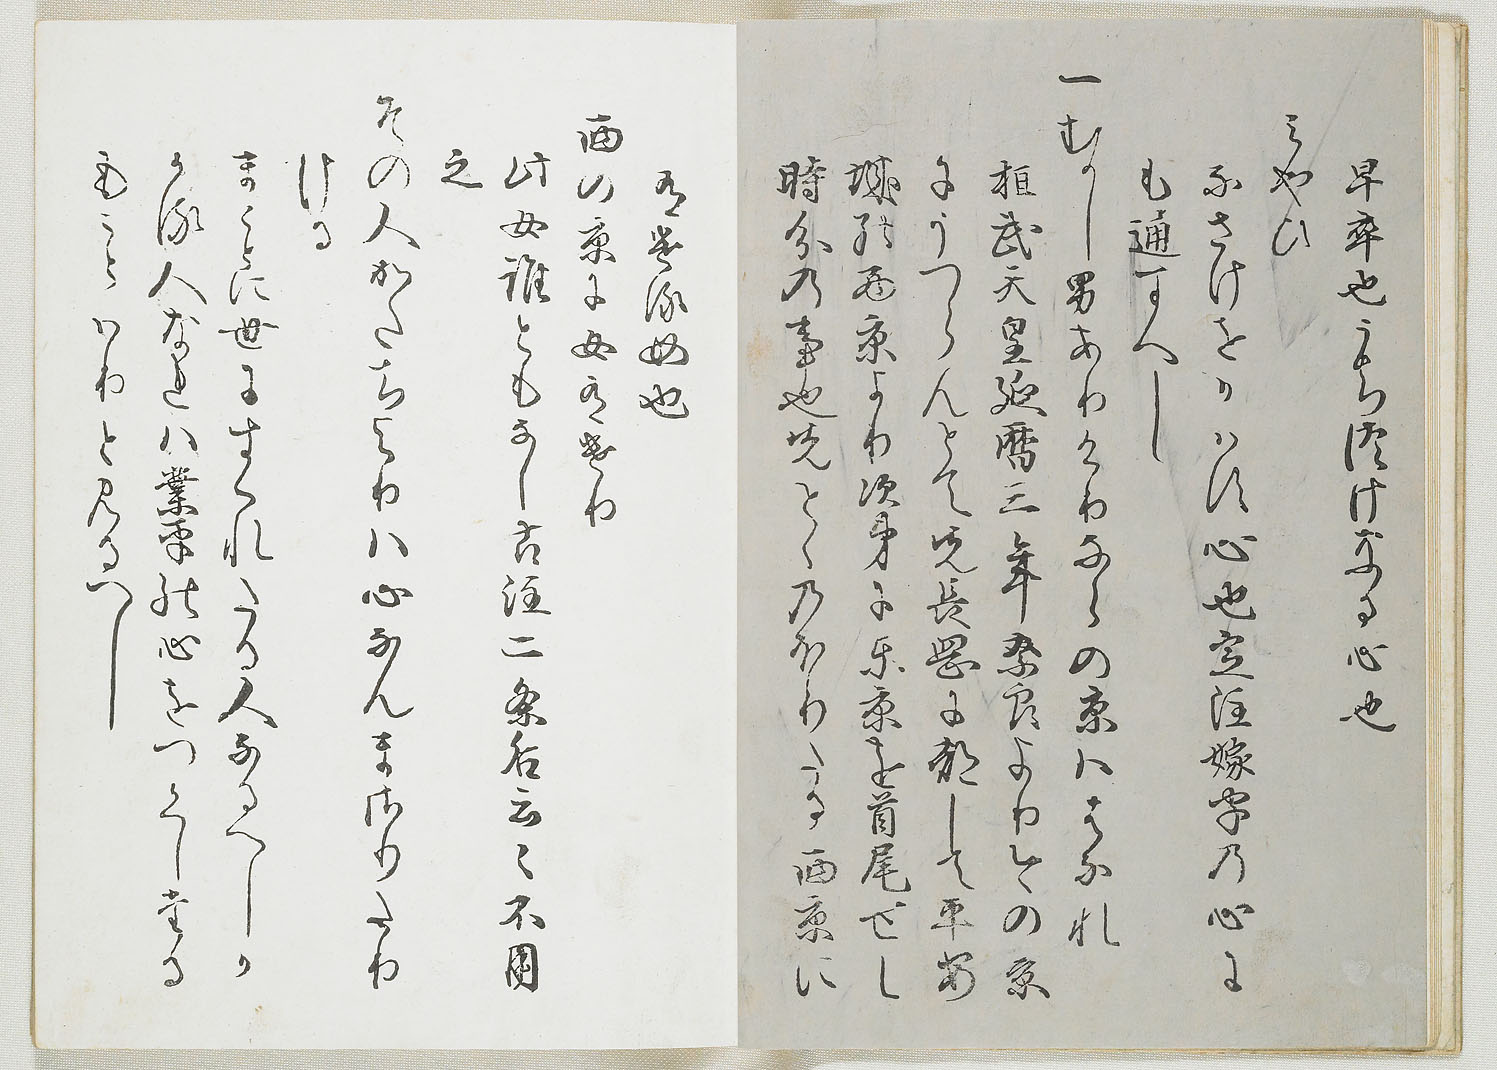 早卒也うちつけなる心也
みやひ
なさけをかはす心也定注嫁字の心に
も通すへし
一むかし男ありけりならの京ははなれ
桓武天皇延暦三年奈良よりこの京
にうつらんとて先長岡に都して平安
城の西京より次第に東京を首尾せし
時分の事也先とくのほりたる西京に
有ける女也
西の京に女ありけり
此女誰ともなし古注二条后云々不用
之
その人かたちよりは心なんまさりたり
ける
まことに世にすくれたる人なるへしか
かる人なれは業平の心をつくしける
もことはりと見るへし